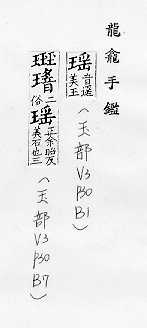 龍龕手鑑
瑶 音遥 美玉 (玉部 V3 P30 B1)
二俗 瑶 正余昭反 美石也三 (玉部 V3 P30 B7)